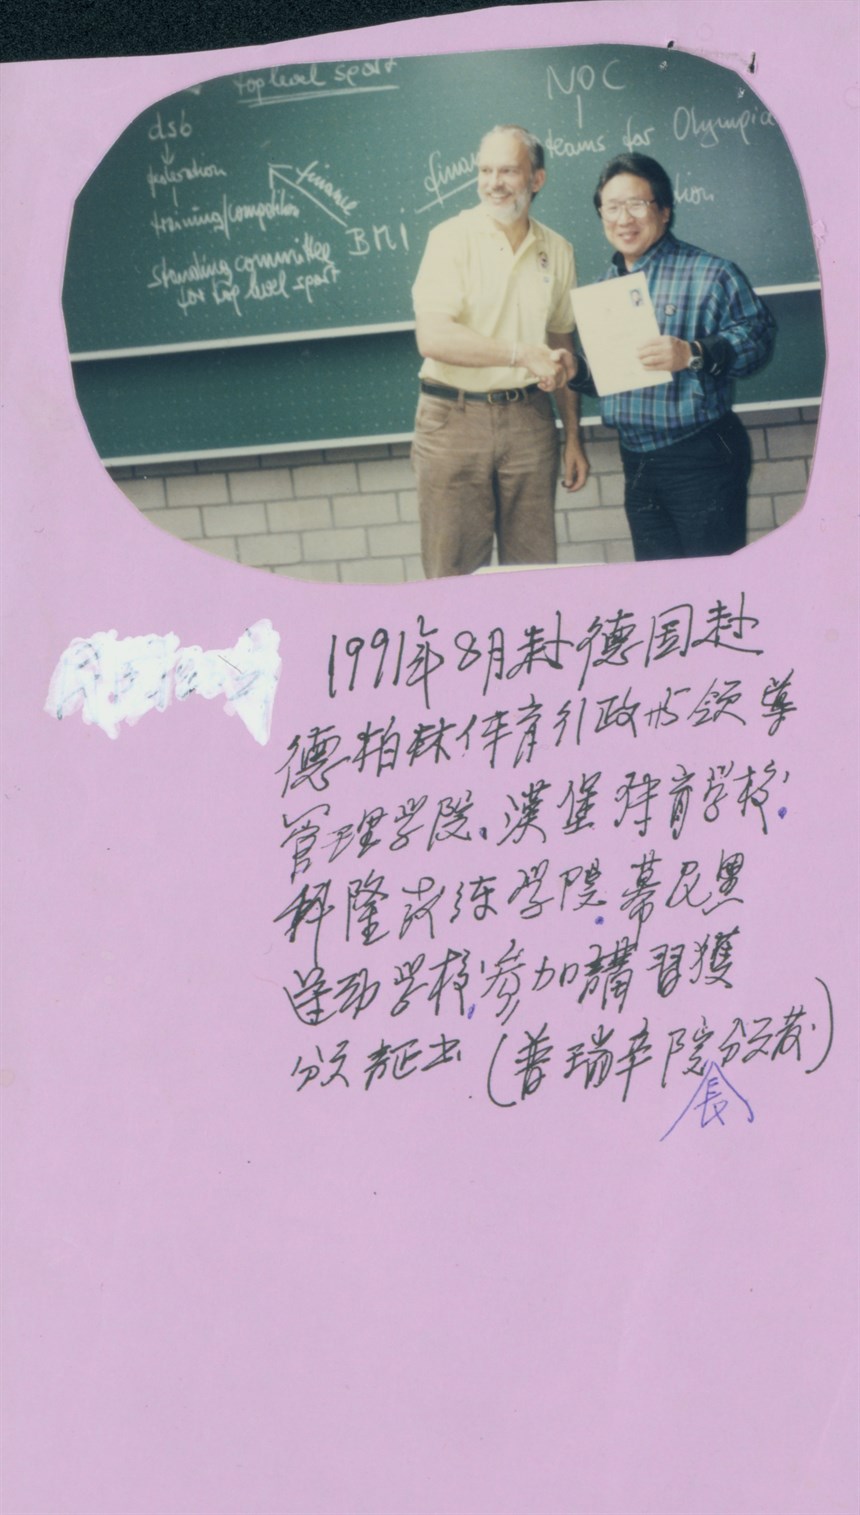 top level sport
NOC
dsb
teams for Olympics
federation
finance
training/competition
BMI
standing committee
for top level sport
1991年8月赴德国赴
德柏林体育行政与领导
管理学院、漢堡体育学校.
科隆教练学院.慕尼黑
运动学校.参加講習獲
颁证书(普瑞辛院長颁发)